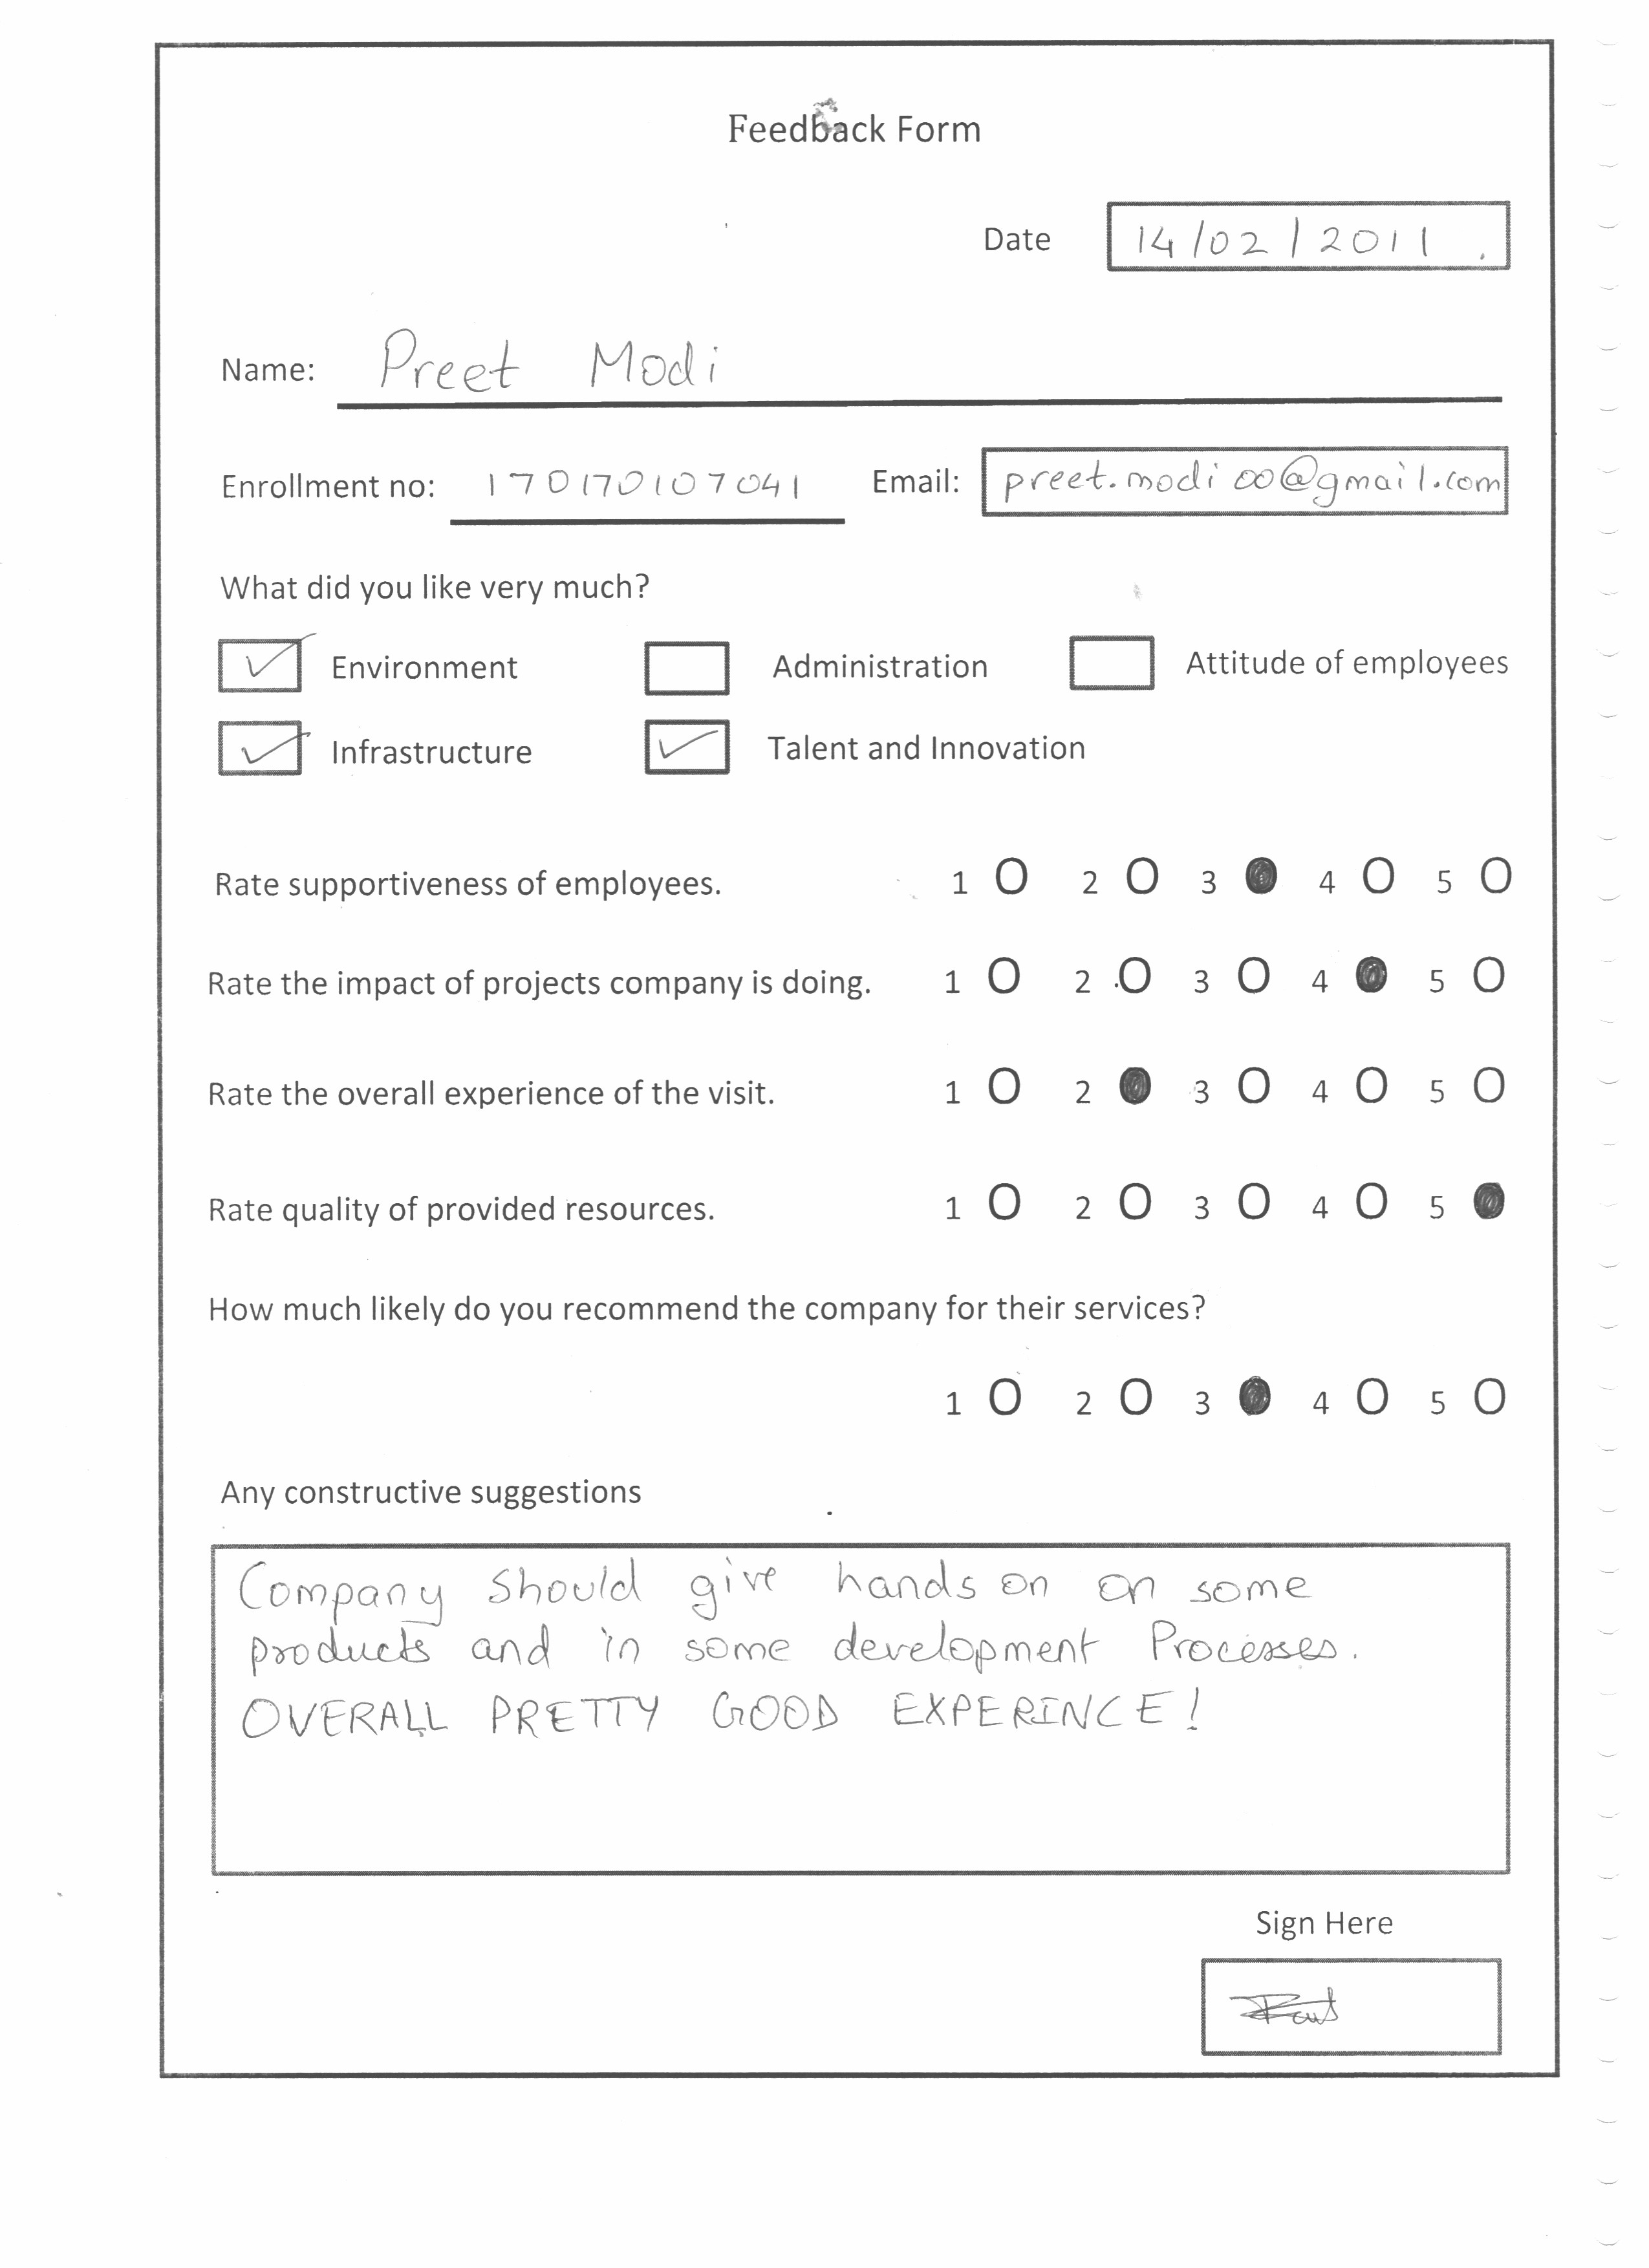 Feedback Form
Date 14/02/2011
Name: Preet Modi
Enrollment no: 170170107041 Email: preet.modi00@gmail.com
What did you like very much?
Environment Administration Attitude of employees
Infrastructure Talent and Innovation
Rate supportiveness of employees. 1 2 3 4 5
Rate the impact of projects company is doing. 1 2 3 4 5
Rate the overall experience of the visit. 1 2 3 4 5
Rate quality of provided resources. 1 2 3 4 5
How much likely do you recommend the company for their services?
1 2 3 4 5
Any constructive suggestions
Company should give hands on on some
products and in some development Processes.
OVERALL PRETTY GOOD EXPERINCE!
Sign Here